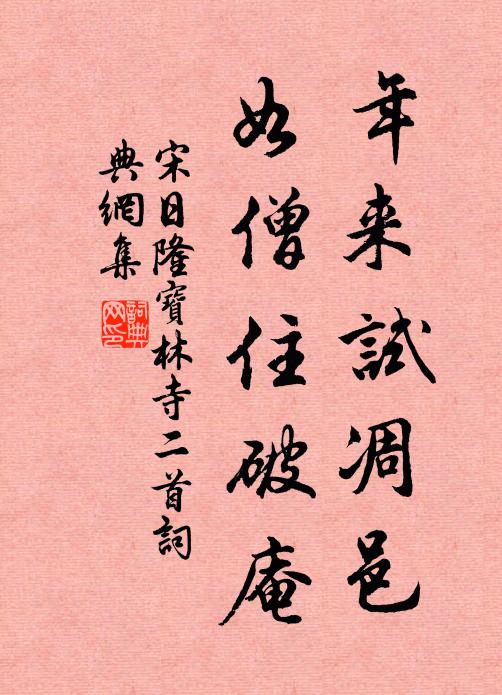 年来試凋邑
如僧住破庵
宋日隆寶林寺二首詞
典網集
詞典网印